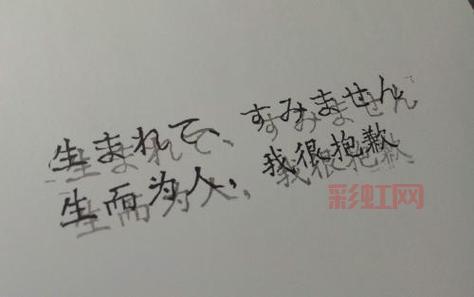 生まれて、すみません
生而为人，我很抱歉
彩虹网